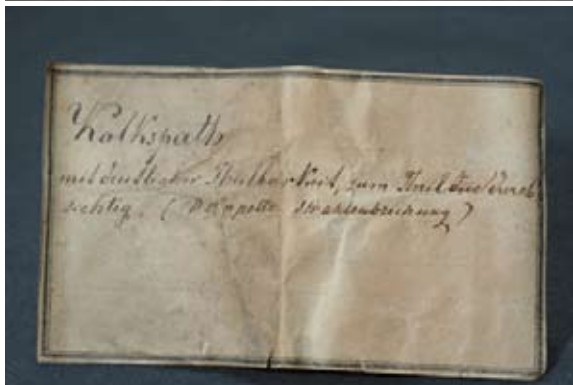 Kalkspath
mit deutlicher Theilbarkeit, zum Theil durch
sichtig. (Doppelte Strahlenbrechung)